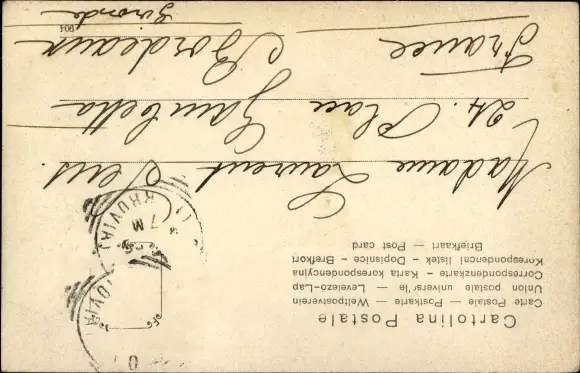 Cartolina Postale
Carte Postale — Postkarte — Weltpostverein
Union postale universe'le — Levelezo-Lap
Correspondenzkarte - Karta korespondencyjna
Korespondencni listek - Dopisnice - Brefkort
Briefkaart — Post card
7 M
Madame Laurent
24. Place Gambetta
Bordeaux
Gironde
France
904